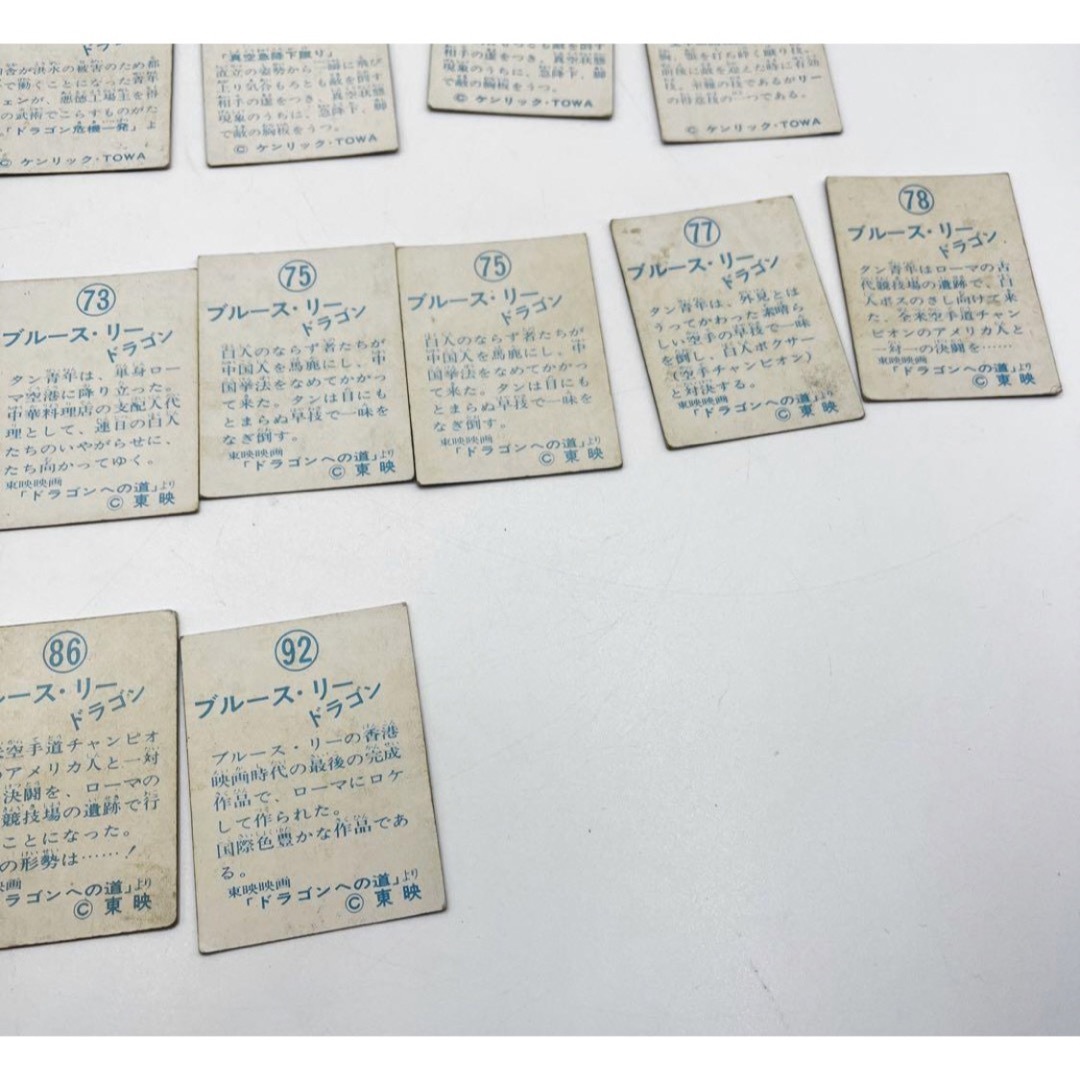 ドラゴン
舎が洪水の被害のため都
で働くことになった青年
ェンが、悪徳工場主を得
の武術でこらすものがた
「ドラゴン危機一発」よ
© ケンリック・TOWA
「真空急降下蹴り」
直立の姿勢から一瞬に飛び
上り気合もろとも敵を倒す
相手の虚をつき、真空状態
現象のうちに、急降下、脚
で敵の胸板をうつ。
© ケンリック・TOWA
相手の虚をつき、真空状態
現象のうちに、急降下、脚
で敵の胸板をうつ。
© ケンリック・TOWA
胸、顎を打ち砕く蹴り技。
前後に敵を迎えた時に有効
な、至難の技であるがリー
の得意技の一つである。
© ケンリック・TOWA
73
ブルース・リー
ドラゴン
タン青年は、単身ロー
マ空港に降り立った。
中華料理店の支配人代
理として、連日の白人
たちのいやがらせに、
たち向かってゆく。
東映映画
「ドラゴンへの道」より
© 東映
75
ブルース・リー
ドラゴン
白人のならず者たちが
中国人を馬鹿にし、中
国拳法をなめてかかっ
て来た。タンは目にも
とまらぬ早技で一味を
なぎ倒す。
東映映画
「ドラゴンへの道」より
© 東映
75
ブルース・リー
ドラゴン
白人のならず者たちが
中国人を馬鹿にし、中
国拳法をなめてかかっ
て来た。タンは目にも
とまらぬ早技で一味を
なぎ倒す。
東映映画
「ドラゴンへの道」より
© 東映
77
ブルース・リー
ドラゴン
タン青年は、外見とは
うってかわった素晴ら
しい空手の早技で一味
を倒し、白人ボクサー
(空手チャンピオン)
と対決する。
東映映画
「ドラゴンへの道」より
© 東映
78
ブルース・リー
ドラゴン
タン青年はローマの古
代競技場の遺跡で、白
人ボスのさし向けて来
た、全米空手道チャン
ピオンのアメリカ人と
一対一の決闘を……
東映映画
「ドラゴンへの道」より
© 東映
86
ース・リー
ドラゴン
空手道チャンピオ
のアメリカ人と一対
決闘を、ローマの
競技場の遺跡で行
ことになった。
の形勢は……!
映画
ドラゴンへの道」より
© 東映
92
ブルース・リー
ドラゴン
ブルース・リーの香港
映画時代の最後の完成
作品で、ローマにロケ
して作られた。
国際色豊かな作品であ
る。
東映映画
「ドラゴンへの道」より
© 東映